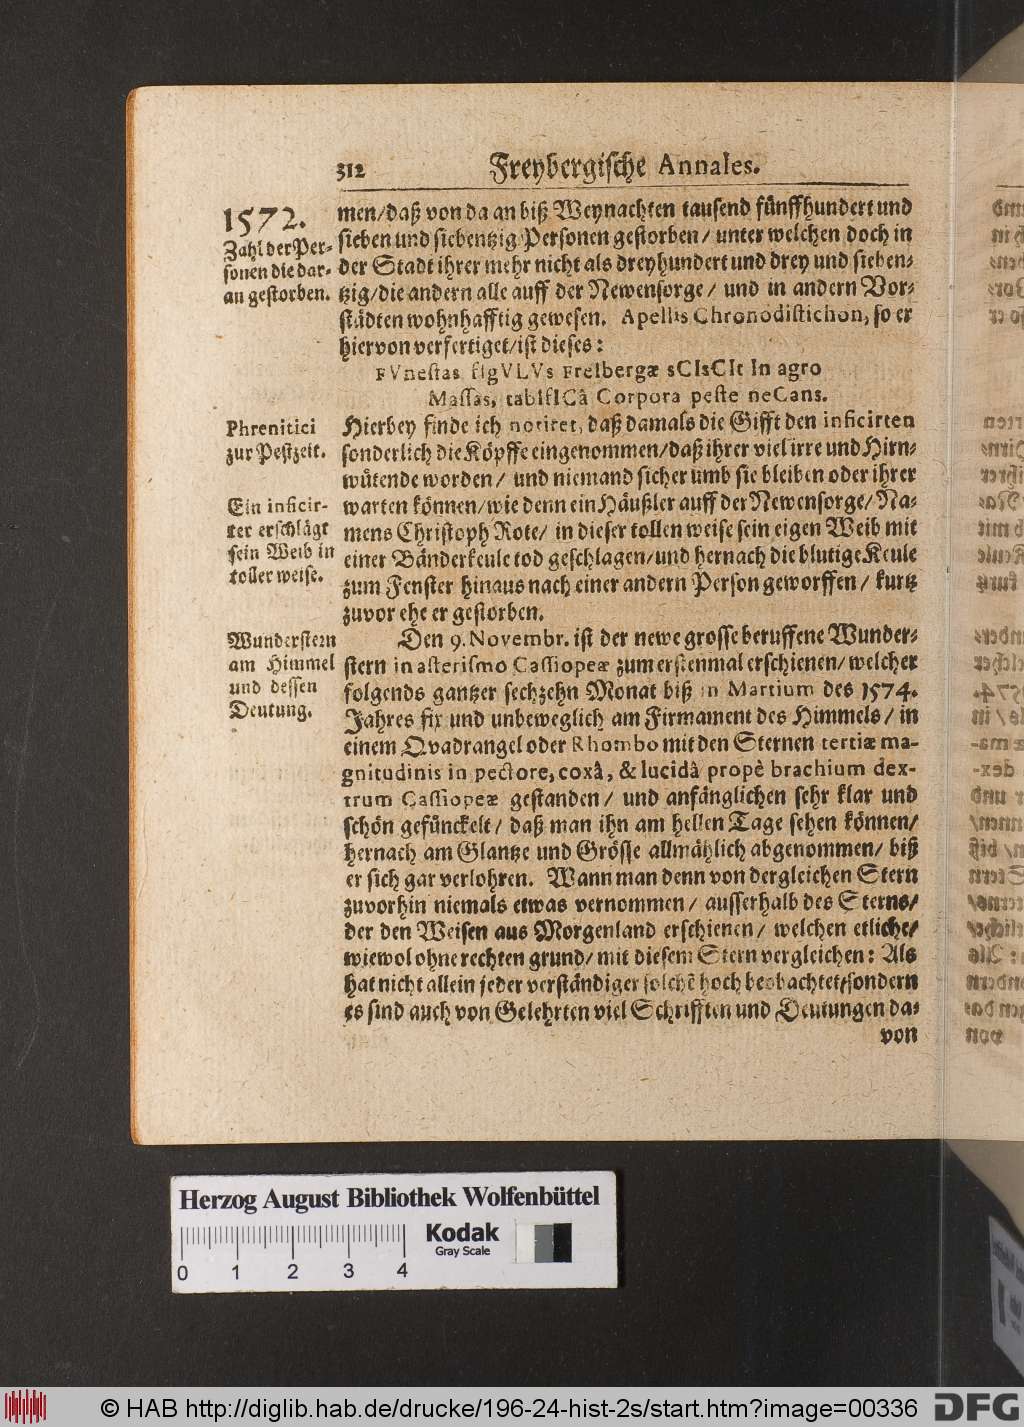 312 Freybergische Annales.
1572.
Zahl der Per-
sonen die dar-
an gestorben.
men/daß von da an biß Weynachten tausend fünffhundert und
sieben und siebentzig Personen gestorben/ unter welchen doch in
der Stadt ihrer mehr nicht als dreyhundert und drey und sieben-
tzig/die andern alle auff der Newensorge/ und in andern Vor-
städten wohnhafftig gewesen. Apellis Chronodistichon, so er
hiervon verfertiget/ist dieses:
FVnestas figVLVs FreIbergæ sCIsCIt In agro
Massas, tabIfICâ Corpora peste neCans.
Phrenitici
zur Pestzeit.
Ein inficir-
ter erschlägt
sein Weib in
toller weise.
Hierbey finde ich notiret, daß damals die Gifft den inficirten
sonderlich die Köpffe eingenommen/daß ihrer viel irre und Hirn-
wütende worden/ und niemand sicher umb sie bleiben oder ihrer
warten können/wie denn ein Häußler auff der Newensorge/ Na-
mens Christoph Rote/ in dieser tollen weise sein eigen Weib mit
einer Bänderkeule tod geschlagen/und hernach die blutige Keule
zum Fenster hinaus nach einer andern Person geworffen/ kurtz
zuvor ehe er gestorben.
Wunderstern
am Himmel
und dessen
Deutung.
Den 9. Novembr. ist der newe grosse beruffene Wunder-
stern in asterismo Cassiopeæ zum erstenmal erschienen/ welcher
folgends gantzer sechzehn Monat biß in Martium des 1574.
Jahres fix und unbeweglich am Firmament des Himmels/ in
einem Qvadrangel oder Rhombo mit den Sternen tertiæ ma-
gnitudinis in pectore, coxâ, & lucidâ propè brachium dex-
trum Cassiopeæ gestanden/ und anfänglichen sehr klar und
schön gefünckelt/ daß man ihn am hellen Tage sehen können/
hernach am Glantze und Grösse allmählich abgenommen/ biß
er sich gar verlohren. Wann man denn von dergleichen Stern
zuvorhin niemals etwas vernommen/ ausserhalb des Sterns/
der den Weisen aus Morgenland erschienen/ welchen etliche/
wiewol ohne rechten grund/ mit diesem Stern vergleichen: Als
hat nicht allein jeder verständiger solchẽ hoch beobachtet/sondern
es sind auch von Gelehrten viel Schrifften und Deutungen da-
von
Herzog August Bibliothek Wolfenbüttel
Kodak
Gray Scale
0 1 2 3 4
© HAB http://diglib.hab.de/drucke/196-24-hist-2s/start.htm?image=00336
DFG